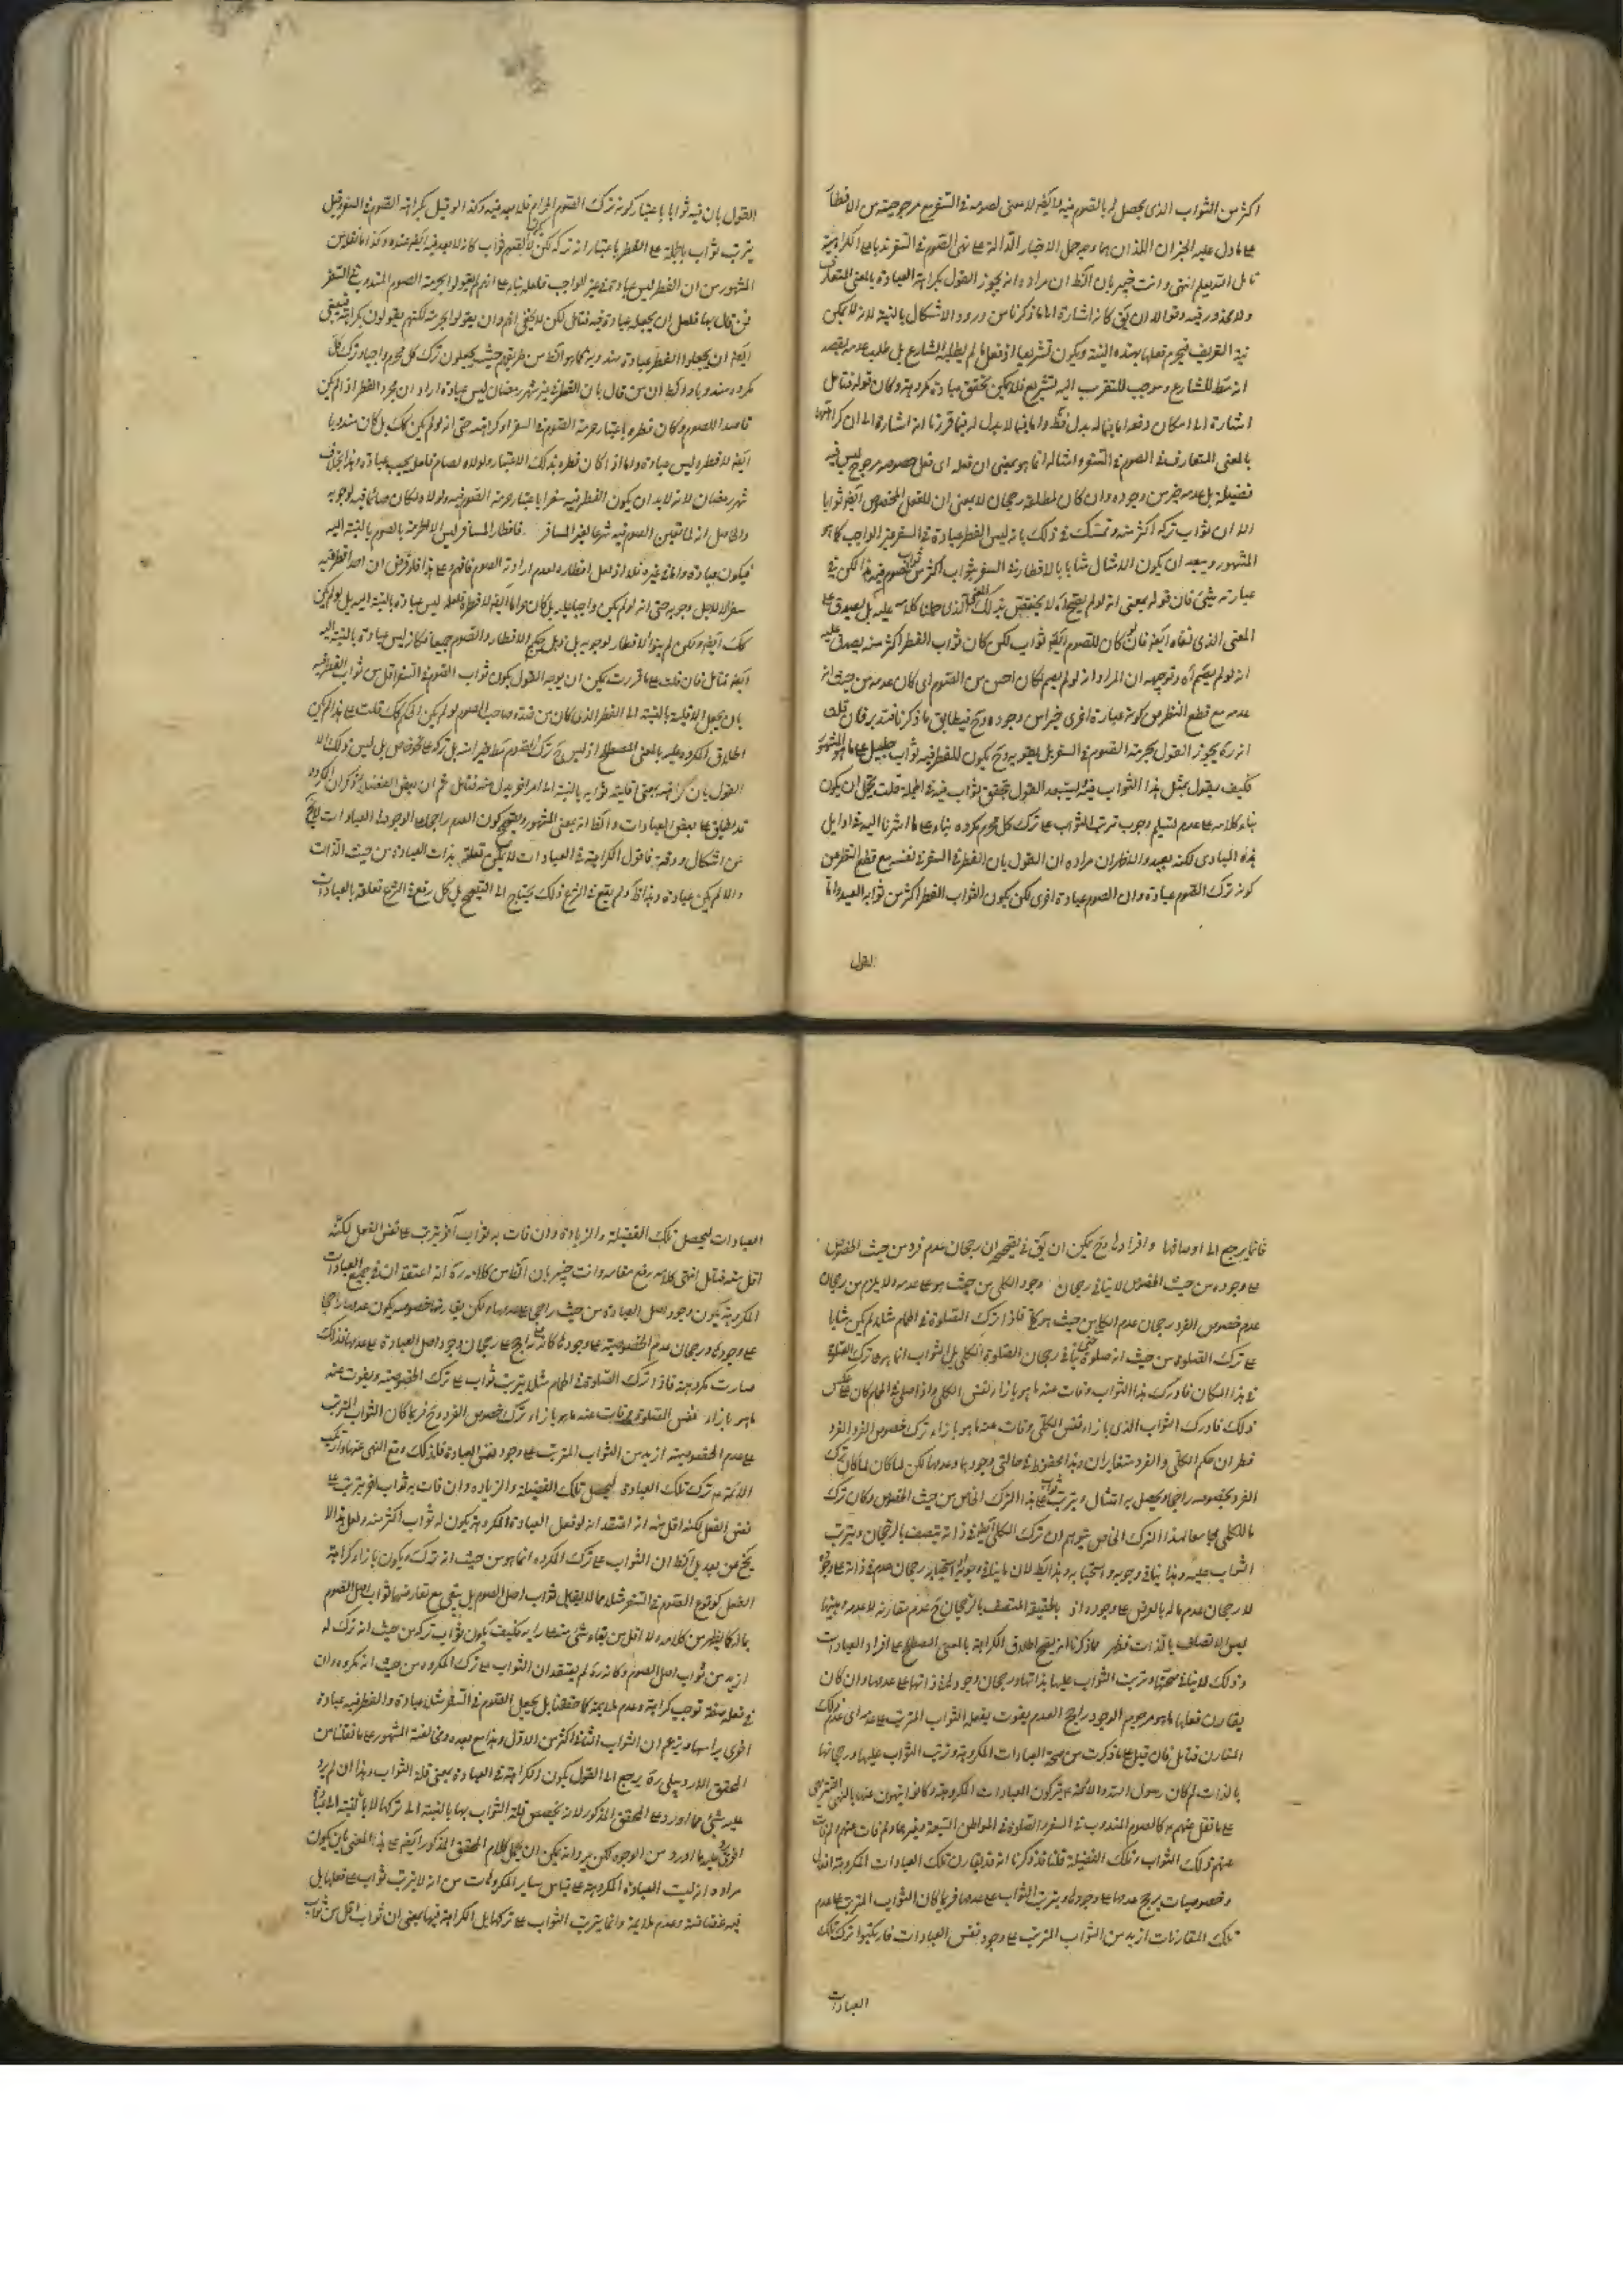 اكثر من الثواب الذى يحصل له بالصوم فيه لا يكفر لا معنى لصومه فى السفر مع مرجوحيته من الافطار
على ما دل عليه الخبران اللذان بهما وجه حمل الاخبار الدالة على نهى الصوم فى السفر ندبا على الكراهية
تامل الله يعلم انتهى وانت خبير بان الظ ان مراده انه يجوز القول بكراهة العبادة بالمعنى المتعارف
ولا محذور فيه وقوله الا ان يق كانه اشارة الى ما ذكرنا من ورود الاشكال بالنية لانه لا يمكن
نية القربة فيحرم فعلها بهذه النية ويكون تشريعا اذ فعل ما لم يطلبه الشارع بل طلب عدمه بقصد
انه مط للشارع وموجب للتقرب اليه تشريع فلا يمكن تحقق عبادة مكروهة وكان قوله فتامل
اشارة الى امكان دفعه اما فيما له بدل فظ واما فيما لا بدل له فبما قررنا او اشارة الى ان كراهة
بالمعنى المتعارف فى الصوم فى السفر وامثاله انما هو بمعنى ان فعله اى فعل خصوصه مرجوح ليس فيه
فضيلة بل عدمه خير من وجوده وان كان لمطلقه رجحان لا بمعنى ان للفعل المخصوص ايضا ثوابا
الا ان ثواب تركه اكثر منه وتمسك فى ذلك بانه ليس الفطر عبادة فى السفر غير الواجب كما هو
المشهور ويبعد ان يكون الامثال مثابا بالافطار فى السفر بثواب اكثر من ثواب الصوم فيه هذا لكن فى
عبارته شئ فان قوله بمعنى انه لو لم يفعله اه لا يختص بذلك المعنى الذى حملنا كلامه عليه بل يصدق على
المعنى الذى نفاه ايضا فانه لو كان للصوم ايضا ثواب لكن كان ثواب الفطر اكثر منه يصدق عليه
انه لو لم يصم اه وتوجيهه ان المراد انه لو لم يصم لكان احسن من الصوم اى كان عدمه من حيث انه
عدمه مع قطع النظر من كونه عبارة اخرى خيرا من وجوده وح فيطابق ما ذكرنا فتدبر فان قلت
انه ره يجوز القول بحرمة الصوم فى السفر بل يقويه وح يكون للفطر فيه ثواب جليل على ما هو المشهور
فكيف يقول بمثل هذا الثواب فيه يستبعد القول بتحقق ثواب فيه فى الجملة قلت يمكن ان يكون
بناء كلامه على عدم تسليم وجوب ترتب الثواب على ترك كل محرم مكروه بناء على ما اشرنا اليه فى اوايل
هذه المبادى لكنه بعيد والظ ان مراده ان القول بان الفطر فى السفر فى نفسه مع قطع النظر عن
كونه ترك الصوم عبادة وان الصوم عبادة اخرى لكن يكون الثواب الفطر اكثر من ثوابه البعيد واما
القول
القول بان فيه ثوابا باعتبار كونه ترك الصوم الحرام فلا بعد فيه وكذا لو قيل بكراهة الصوم فى السفر وقيل
يترتب ثواب بالجملة على الفطر باعتبار انه تركه لكن يكون للصوم ثواب كانه لا بعد فيه ايضا عنده وكذا ما نقله من
المشهور من ان الفطر ليس عبادة فى غير الواجب فلعله بناء على انهم لم يقولوا بحرمة الصوم المندوب فى السفر
فمن قال بها فله ان يجعله عبادة فيه فتامل لكن لا يخفى انهم وان لم يقولوا بحرمته لكنهم يقولون بكراهته فينبغى
ايضا ان يجعلوا الفطر عبادة مندوبة كما هو الظ من طريقهم حيث يجعلون ترك كل محرم واجبا وترك كل
مكروه مندوبا والظ ان من قال بان الفطر فى غير شهر رمضان ليس عبادة اراد ان مجرد الفطر اذا لم يكن
قاصدا للصوم وكان فطره باعتبار حرمة الصوم فى السفر او كراهته حتى انه لو لم يكن كك بل كان مندوبا
ايضا لافطر وليس عبادة واما اذا كان فطره بذلك الاعتبار ولولاه لصام فلعله يحسب عبادة وهذا بخلاف
شهر رمضان لانه لا بد ان يكون الفطر فيه سفرا باعتبار حرمة الصوم فيه ولولاه لكان صائما فيه لوجوبه
والحاصل انه لما تعين الصوم فيه شرعا لغير المسافر فافطار المسافر ليس الا لحرمة بالصوم بالنسبة اليه
فيكون عبادة واما فى غيره فلا اذ لعل افطاره لعدم ارادته الصوم فافهم وعلى هذا فلو فرض ان احدا افطر فيه
سفرا لا لاجل وجوبه حتى انه لو لم يكن واجبا عليه بل كان حراما ايضا لافطر فلعله ليس عبادة بالنسبة اليه بل لو لم يكن
كك ايضا ولكن لم ينو الافطار لوجوبه بل ذهل عن حكم الافطار والصوم جميعا فكانه ليس عبادة بالنسبة اليه
ايضا فتامل فان قلت على ما قررت يمكن ان يوجه القول بكون ثواب الصوم فى السفر اقل من ثواب الفطر فيه
بان يجعل الاقلية بالنسبة الى الفطر الذى كان من قصد صاحبه الصوم لو لم يكن الحكم كك قلت على هذا لم يكن
اطلاق المكروه عليه بالمعنى المصطلح اذ ليس ح ترك الصوم مط خيرا منه بل تركه على نحو خاص بل ليس ذلك الا
القول بان كراهته بمعنى اقلية ثوابه بالنسبة الى امر اخر بدل منه فتامل ثم ان بعض الفضلاء ذكر ان المكروه
قد يطلق على بعض العبادات والظ انه بمعنى المشهور وليتضح كون العدم راجحا على الوجود فى العبادات لا يخ
عن اشكال ودقة فاقول الكراهة فى العبادات لا يمكن تعلقها بذات العبادة من حيث الذات
والا لم يكن عبادة وهذا ظ ولم يقع فى الشرع ذلك يحتاج الى التصحيح بل كل ما وقع فى الشرع تعلقه بالعبادات
فانما يرجع الى اوصافها وافرادها وح يمكن ان يق فى تصحيحه ان رجحان عدم فرد من حيث الخصوص
على وجوده من حيث الخصوص لا ينافى رجحان وجود الكلى من حيث هو على عدمه ولا يلزم من رجحان
عدم خصوص الفرد رجحان عدم الكلى من حيث هو كلى فاذا ترك الصلوة فى الحمام مثلا لم يكن مثابا
على ترك الصلوة من حيث انه صلوة حتى ينافى رجحان الصلوة الكلى بل الثواب انما هو على ترك الصلوة
فى هذا المكان فادرك هذا الثواب وفات عنه ما هو بازاء نفس الكلى واذا صلى فى الحمام كان على عكس
ذلك فادرك الثواب الذى بازاء نفس الكلى وفات عنه ما هو بازاء ترك خصوص الفرد الفرد
فظهر ان حكم الكلى والفرد متغايران وهذا محفوظ فى حالتى وجودهما وعدمهما لكن لما كان لمكان ترك
الفرد بخصوصه راجحا ويحصل به امتثال ويترتب ثواب على هذا الترك الخاص من حيث الخصوص وكان ترك
الكلى مجامعا لهذا الترك الخاص يتوهم ان ترك الكلى ايضا فى ذاته يتصف بالرجحان ويترتب
الثواب عليه وهذا ينافى وجوبه واستحبابه وهذا باطل لان ما ينافى وجوبه واستحبابه رجحان عدمه فى ذاته على وجوده
لا رجحان عدم ما له بالعرض على وجوده اذ بالحقيقة المتصف بالرجحان ح عدم مقارنه لا عدمه وبينهما
ليس الاتصاف بالذات فظهر مما ذكرنا انه يصح اطلاق الكراهة بالمعنى المصطلح على افراد العبادات
وذلك لا ينافى صحتها وترتب الثواب عليها بذاتها ورجحان وجودها فى ذاتها على عدمها وان كان
يقارن فعلها ما هو مرجوح الوجود راجح العدم يفوت بفعله الثواب المترتب على عدمه اى عدم ذلك
المقارن فتامل فان قيل على ما ذكرت من صحة العبادات المكروهة وترتب الثواب عليها ورجحانها
بالذات لم كان رسول الله والائمة ع يتركون العبادات المكروهة وكانوا ينهون عنها بالنهى التنزيهى
على ما نقل عنهم ع كالصوم المندوب فى السفر والصلوة فى المواطن التسعة وغيرها ولم فات عنهم ولم فات
عنهم ذلك الثواب وتلك الفضيلة قلنا قد ذكرنا انه قد يقارن تلك العبادات المكروهة افراد
وخصوصيات يرجح عدمها على وجودها ويترتب الثواب على عدمها فربما كان الثواب المترتب على عدم
تلك المقارنات ازيد من الثواب المترتب على وجود نفس العبادات فارتكبوا ترك تلك
العبادات
العبادات ليحصل تلك الفضيلة والزيادة وان فات به ثواب اخر يترتب على نفس الفعل لكنه
اقل منه فتامل انتهى كلامه رفع مقامه وانت خبير بان الناس كلامه ره انه اعتقد ان فى جميع العبادات
المكروهة يكون وجود اصل العبادة من حيث هو راجحا على عدمها ولكن يقارنها خصوصية يكون عدمها راجحا
على وجودها ورجحان عدم الخصوصية على وجودها كانه راجح على رجحان وجود اصل العبادة على عدمها فلذلك
صارت مكروهة فاذا ترك الصلوة فى الحمام مثلا يترتب ثواب على ترك الخصوصية ويفوت عنه
ما هو بازاء نفس الصلوة وفات عنه ما هو بازاء ترك خصوص الفرد وح فربما كان الثواب المترتب
على عدم الخصوصية ازيد من الثواب المترتب على وجود نفس العبادة فلذلك وقع النهى عنها وارتكب
الائمة ع ترك تلك العبادة ليحصل تلك الفضيلة والزيادة وان فات به ثواب اخر يترتب على
نفس الفعل لكنه اقل منه انه اعتقد انه لو فعل العبادة المكروهة يكون له ثواب اكثر منه ولعل هذا لا
يخ عن بعد بل الظ ان الثواب على ترك المكروه انما هو من حيث انه تركه ويكون بازاء كراهة
الفعل كوقوع الصوم فى السفر مثلا مما لا يقابل ثواب اصل الصوم بل يبقى مع تعارضهما ثواب اصل الصوم
بحاله كما يظهر من كلامه ولا اقل من بقاء شئ منه على رايه فكيف يكون ثواب تركه من حيث انه ترك له
ازيد من ثواب اصل الصوم وكانه ره لم يعتقد ان الثواب على ترك المكروه من حيث انه مكروه وان
فى فعله صفة توجب كراهة وعدم ملايمة كما حققنا بل يجعل الصوم فى السفر مثلا عبادة والفطر فيه عبادة
اخرى براسها ويزعم ان الثواب الثانى اكثر من الاول وهذا مع بعده ومخالفته المشهور على ما نقلنا من
المحقق الاردبيلى ره يرجع الى القول بكون الكراهة فى العبادة بمعنى قلة الثواب وهذا ان لم يرد
عليه شئ مما اورد على المحقق المذكور لانه يخصص قلة الثواب بها بالنسبة الى تركها لا بالنسبة الى عبادة
اخرى عليه ما اورد من الوجوه لكن يرد انه يمكن ان يحمل كلام المحقق المذكور ايضا على هذا المعنى بان يكون
مراده انه ليست العبادة المكروهة على قياس ساير المكروهات من انه لا يترتب ثواب على فعلها بل
فيه غضاضة وعدم ملايمة وانما يترتب الثواب على تركها بل الكراهة فيها بمعنى ان ثوابه اقل من ثواب